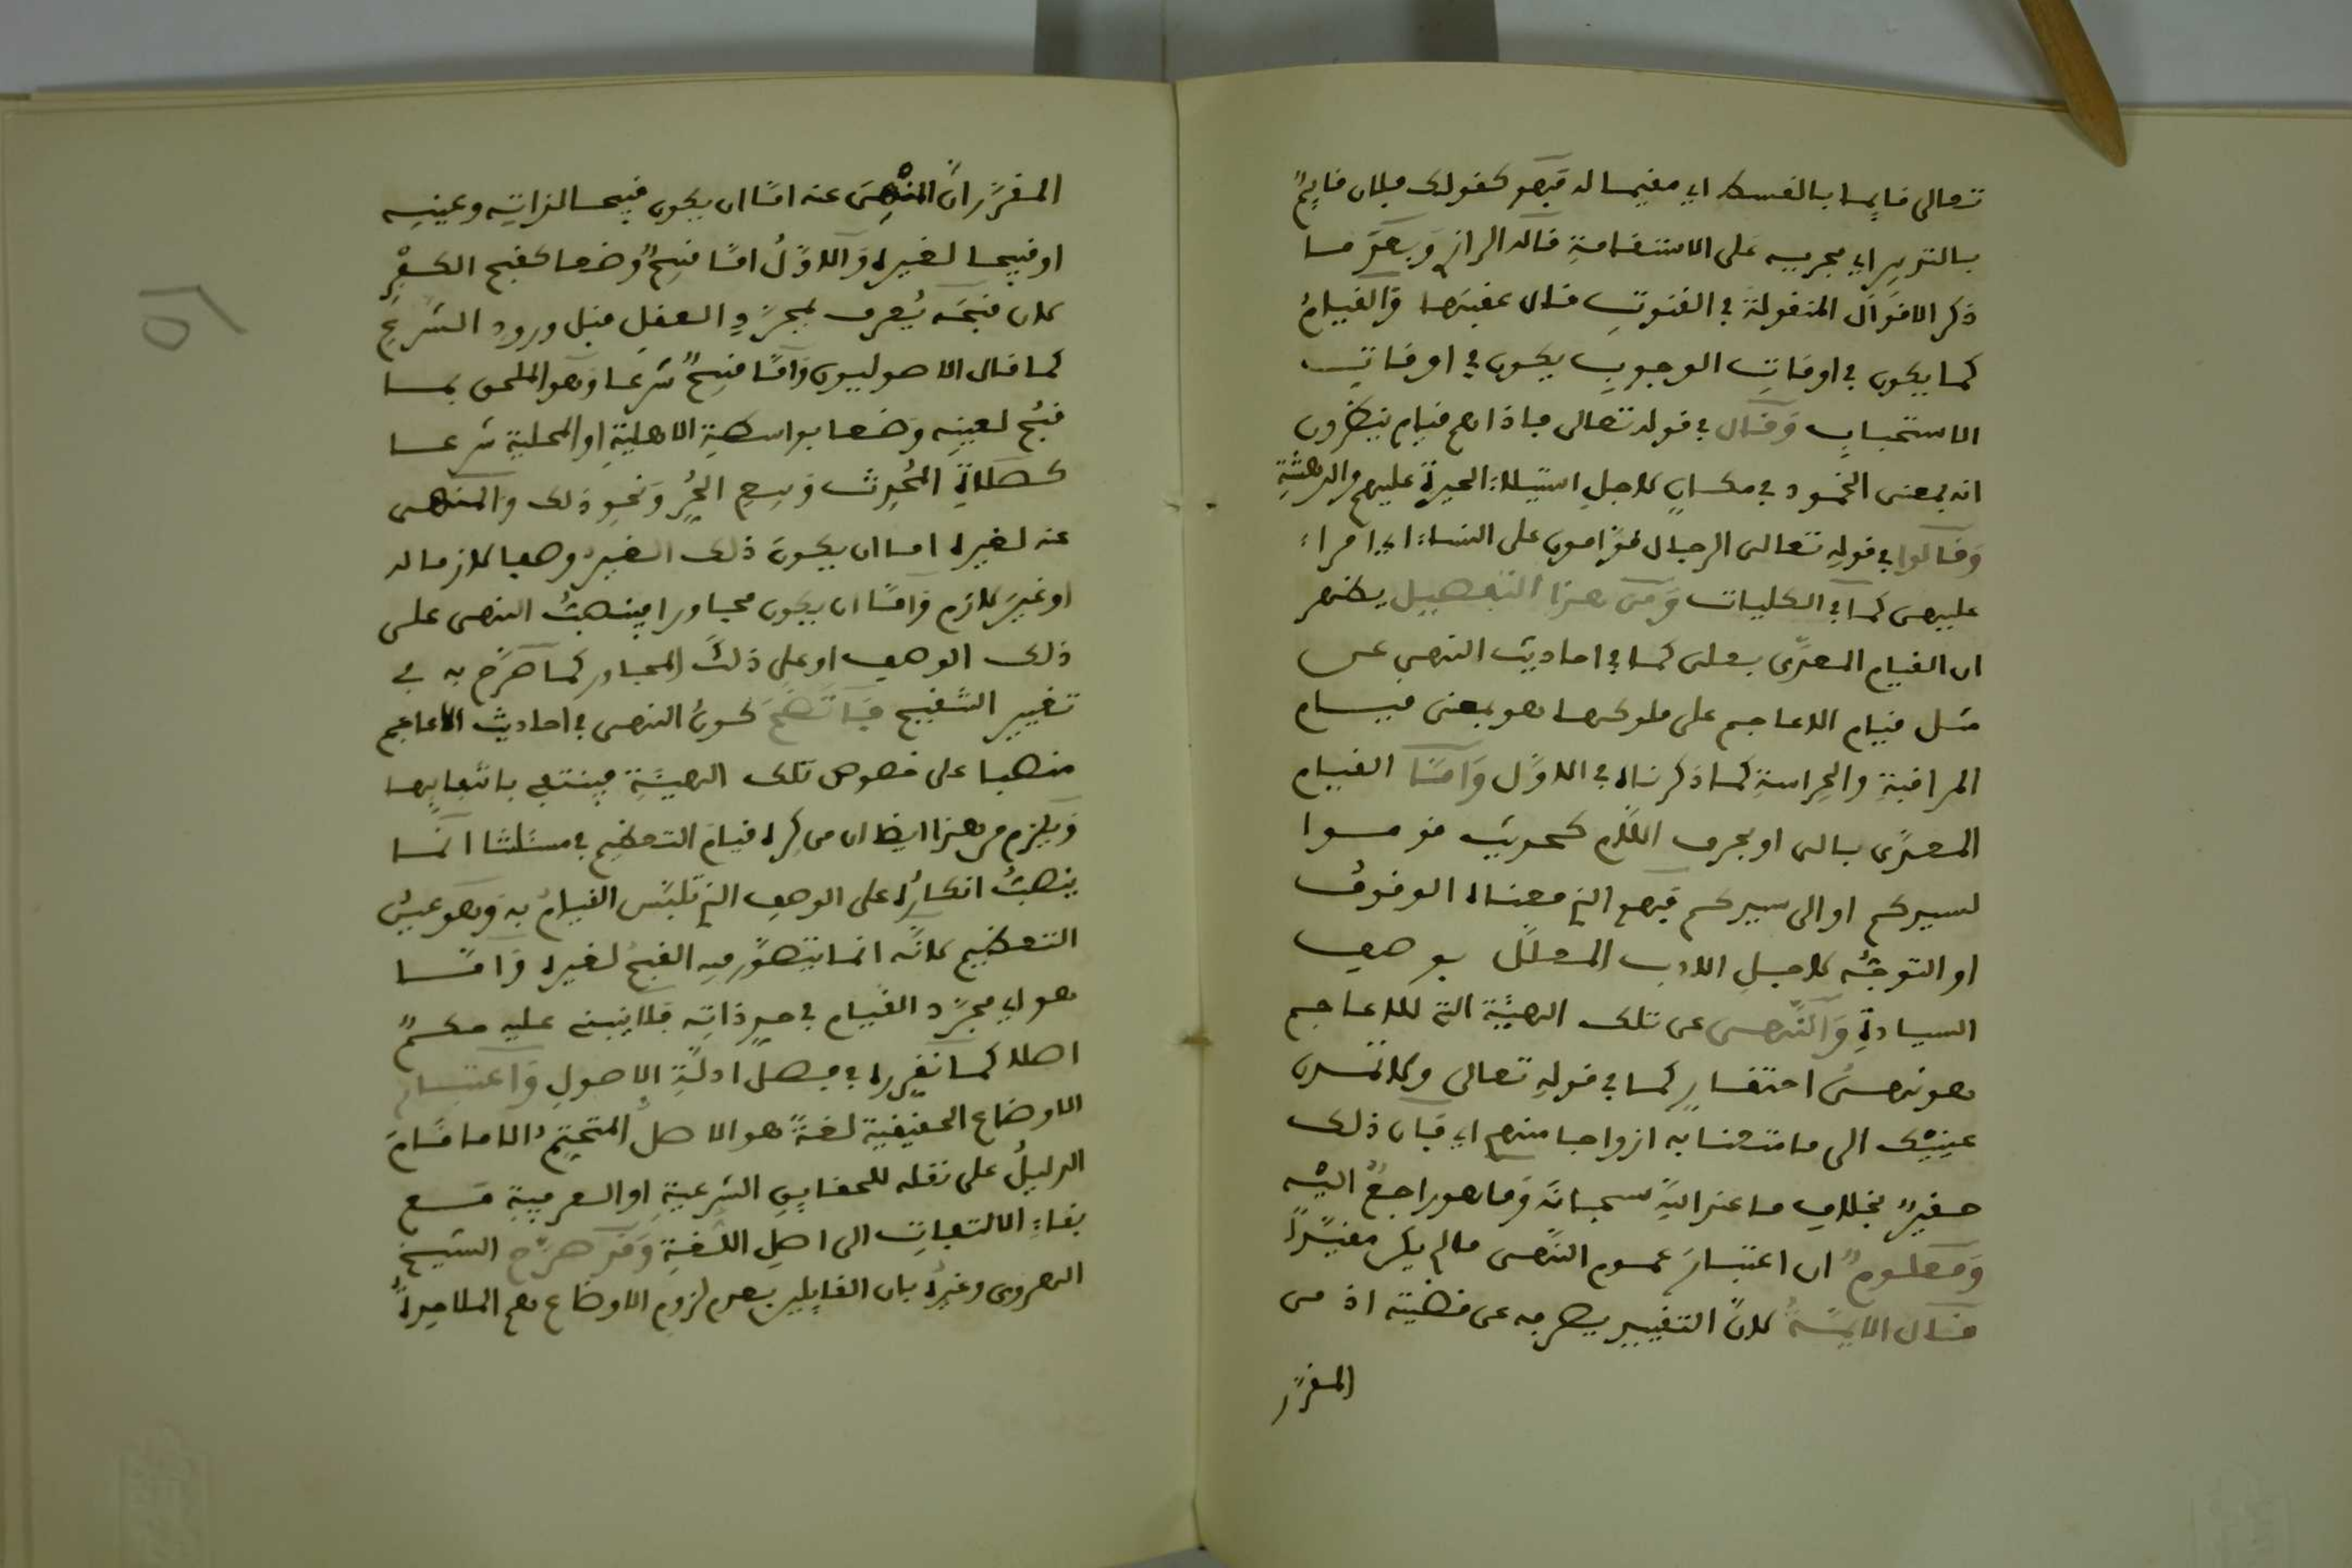 تعالى قايما بالقسط اي مقيما له فهو كقولك فلان قايمٌ
بالتدبير اي يجريه على الاستقامة قاله الرازي وبعد ما
ذكر الاقوال المنقولة في القنوت قال عقبها والقيام
كما يكون في اوقات الوجوب يكون في اوقات
الاستحباب وقال في قوله تعالى فاذا هم قيام ينظرون
انه بمعنى الخمود في مكان لاجل استيلاء الحيرة عليهم والدهشة
وقالوا في قوله تعالى الرجال قوامون على النساء اي امراء
عليهن كما في الكليات ومن هذا التفصيل يظهر
ان القيام المعدى بعلى كما في احاديث النهي عن
مثل قيام الاعاجم على ملوكها هو بمعنى قيام
المراقبة والحراسة كما ذكرناه في الاول واما القيام
المعدى بالى او بحرف اللام كحديث قوموا
لسيدكم او الى سيدكم فهو الذي معناه الوقوف
او التوجه لاجل الادب المعلل بوصف
السيادة والنهي عن تلك الهيئة التي للاعاجم
هو نهي احتقار كما في قوله تعالى ولا تمدن
عينيك الى ما متعنا به ازواجا منهم اي فان ذلك
حقير بخلاف ما عند الله سبحانه وما هو راجع اليه
ومعلوم ان اعتبار عموم النهي ما لم يكن مقيدا
قال الايمة لان التقييد يصرفه عن قضيته اذ من
المقرر
المقرر ان المنهي عنه اما ان يكون قبيحا لذاته وعينه
او قبيحا لغيره والاول اما قبح وضعا كقبح الكفر
لان قبحه يعرف بمجرد العقل قبل ورود الشرع
كما قال الاصوليون واما قبح شرعا وهو الملحق بما
قبح لعينه وضعا بواسطة الاهلية او المحلية شرعا
كصلاة المحدث وبيع الحر ونحو ذلك والمنهي
عنه لغيره اما ان يكون ذلك الغير وصفا لازما له
او غير لازم واما ان يكون مجاورا فينصب النهي على
ذلك الوصف او على ذلك المجاور كما صرح به في
تغيير التنقيح فاتضح كون النهي في احاديث الاعاجم
منصبا على خصوص تلك الهيئة فينتفي بانتفايها
ويلزم من هذا ايضا ان من كره قيام التعظيم في مسئلتنا انما
ينصب انكاره على الوصف الذي تلبس القيام به وهو عين
التعظيم لانه انما يتصور فيه القبح لغيره واما
هو اي مجرد القيام في حد ذاته فلا ينبني عليه حكم
اصلا كما تقرر في فصل ادلة الاصول واعتبار
الاوضاع الحقيقية لغة هو الاصل المتحتم الا ما قام
الدليل على نقله للحقايق الشرعية او العرفية مع
بقاء الالتفات الى اصل اللغة وقد صرح الشيخ
الهروي وغيره بان القايلين بعدم لزوم الاوضاع هم الملاحدة